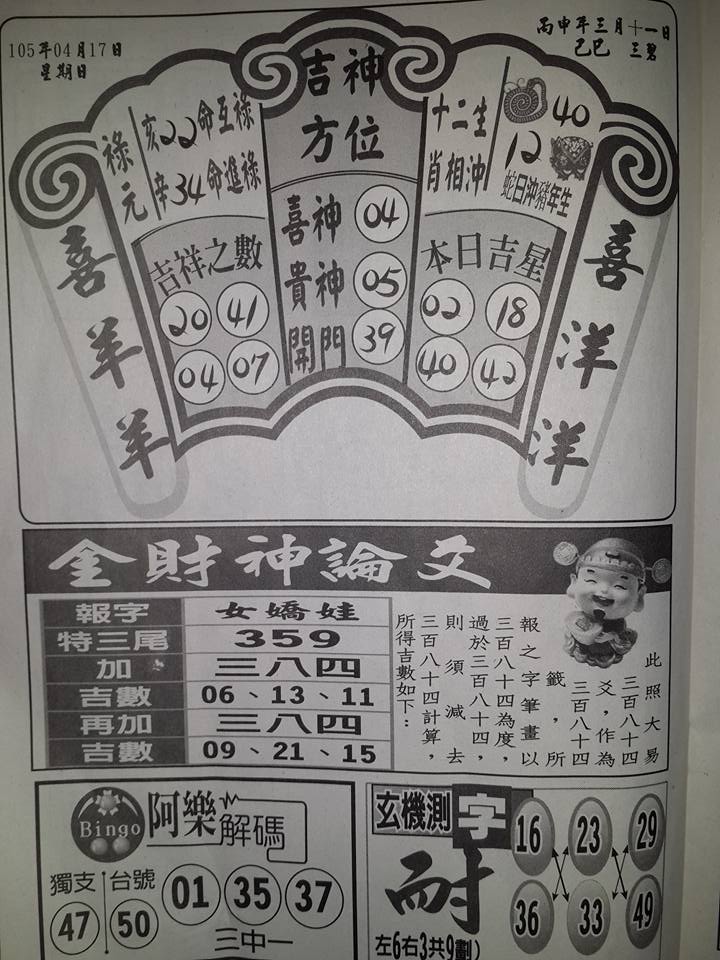 105年04月17日
星期日
丙申年三月十一日
己巳 三碧
吉神
方位
喜神 04
貴神 05
開門 39
祿元
亥22命互祿
辛34命進祿
吉祥之數
20 41
04 07
十二生
肖相沖
40
12
蛇日沖豬年生
本日吉星
02 18
40 42
喜羊羊
喜洋洋
金財神論爻
報字 女嬌娃
特三尾 359
加 三八四
吉數 06、13、11
再加 三八四
吉數 09、21、15
此照大易
三百八十四
爻，作為
三百八十四
籤，所
報之字筆畫以
三百八十四為度，
過於三百八十四，
則須減去
三百八十四計算，
所得吉數如下：
Bingo 阿樂解碼
獨支 台號
47 50
01 35 37
三中一
玄機測字
耐
左6右3共9劃)
16 23 29
36 33 49